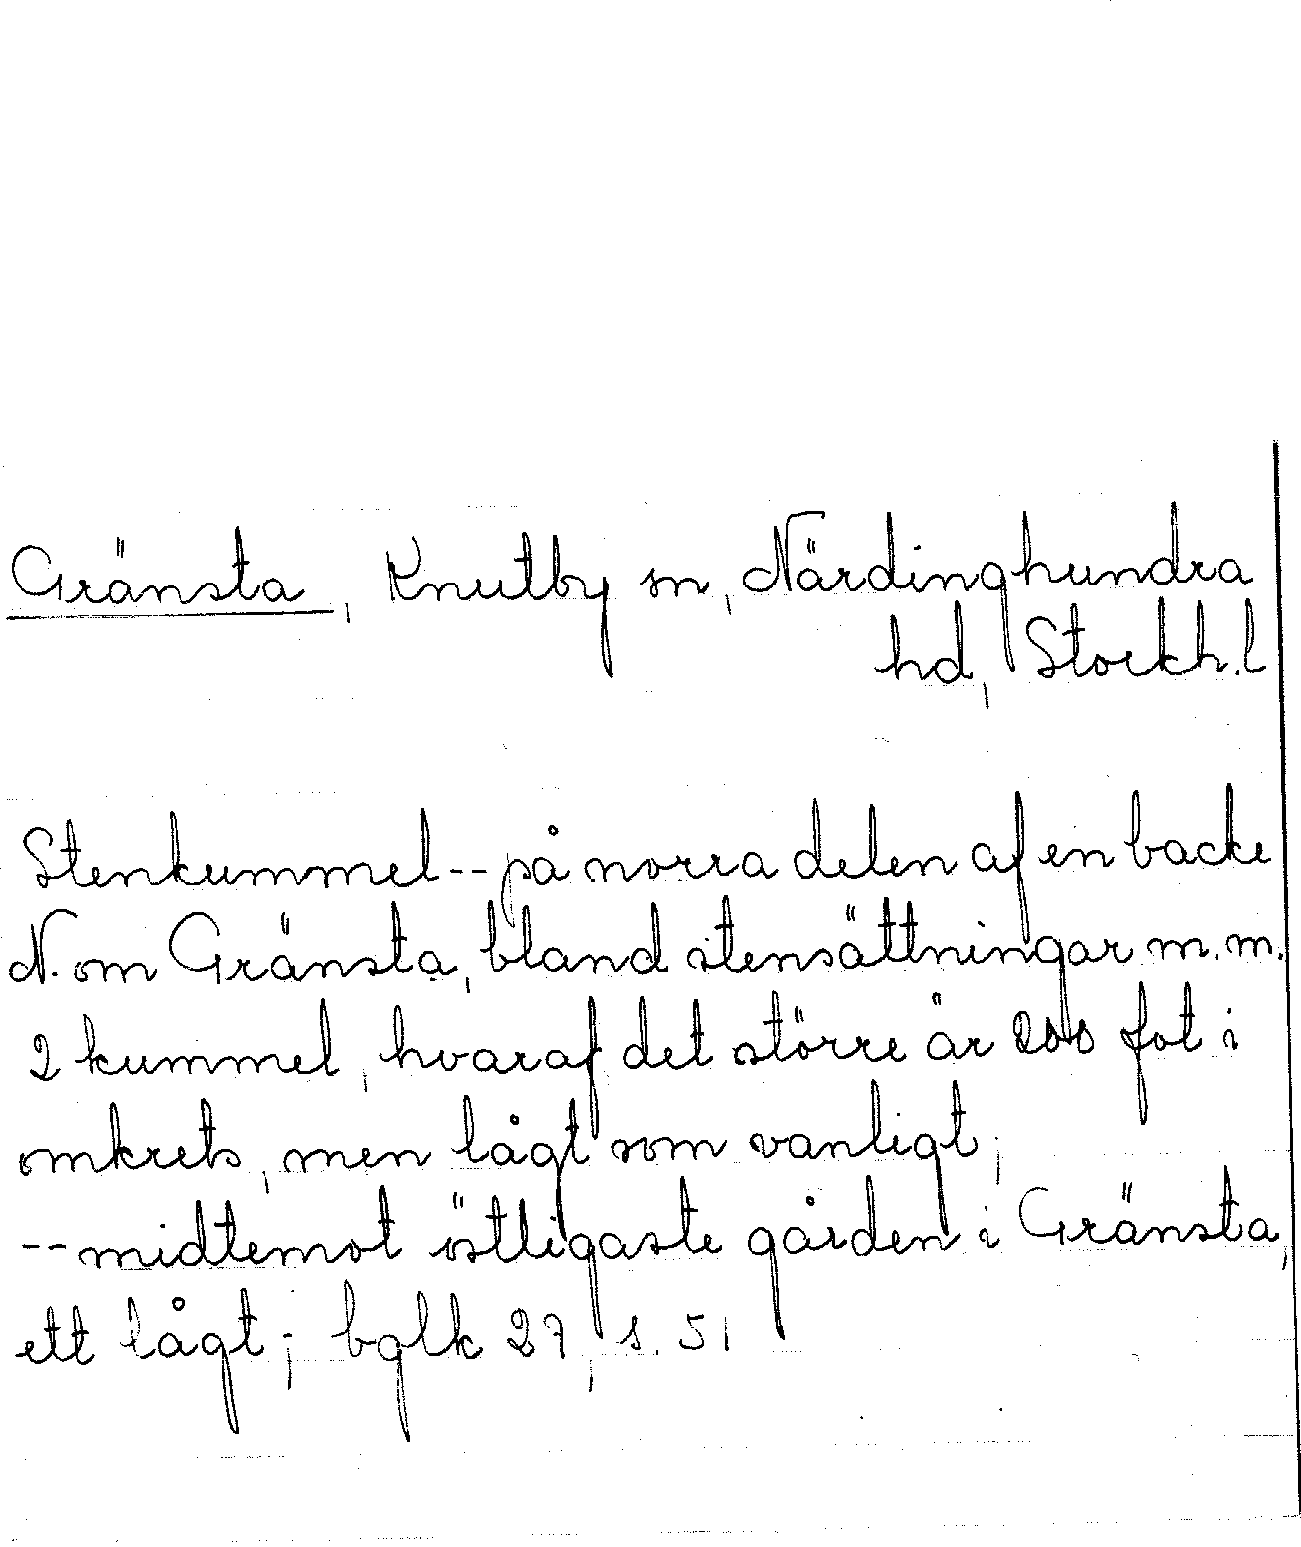 Gränsta, Knutby sn, Närdinghundra
hd, Stockh.l
Stenkummel -- på norra delen af en backe
N. om Gränsta, bland stensättningar m.m.
2 kummel, hvaraf det större är 200 fot i
omkrets, men lågt som vanligt;
-- midtemot östligaste gården i Gränsta,
ett lågt; bglk 27, s. 51